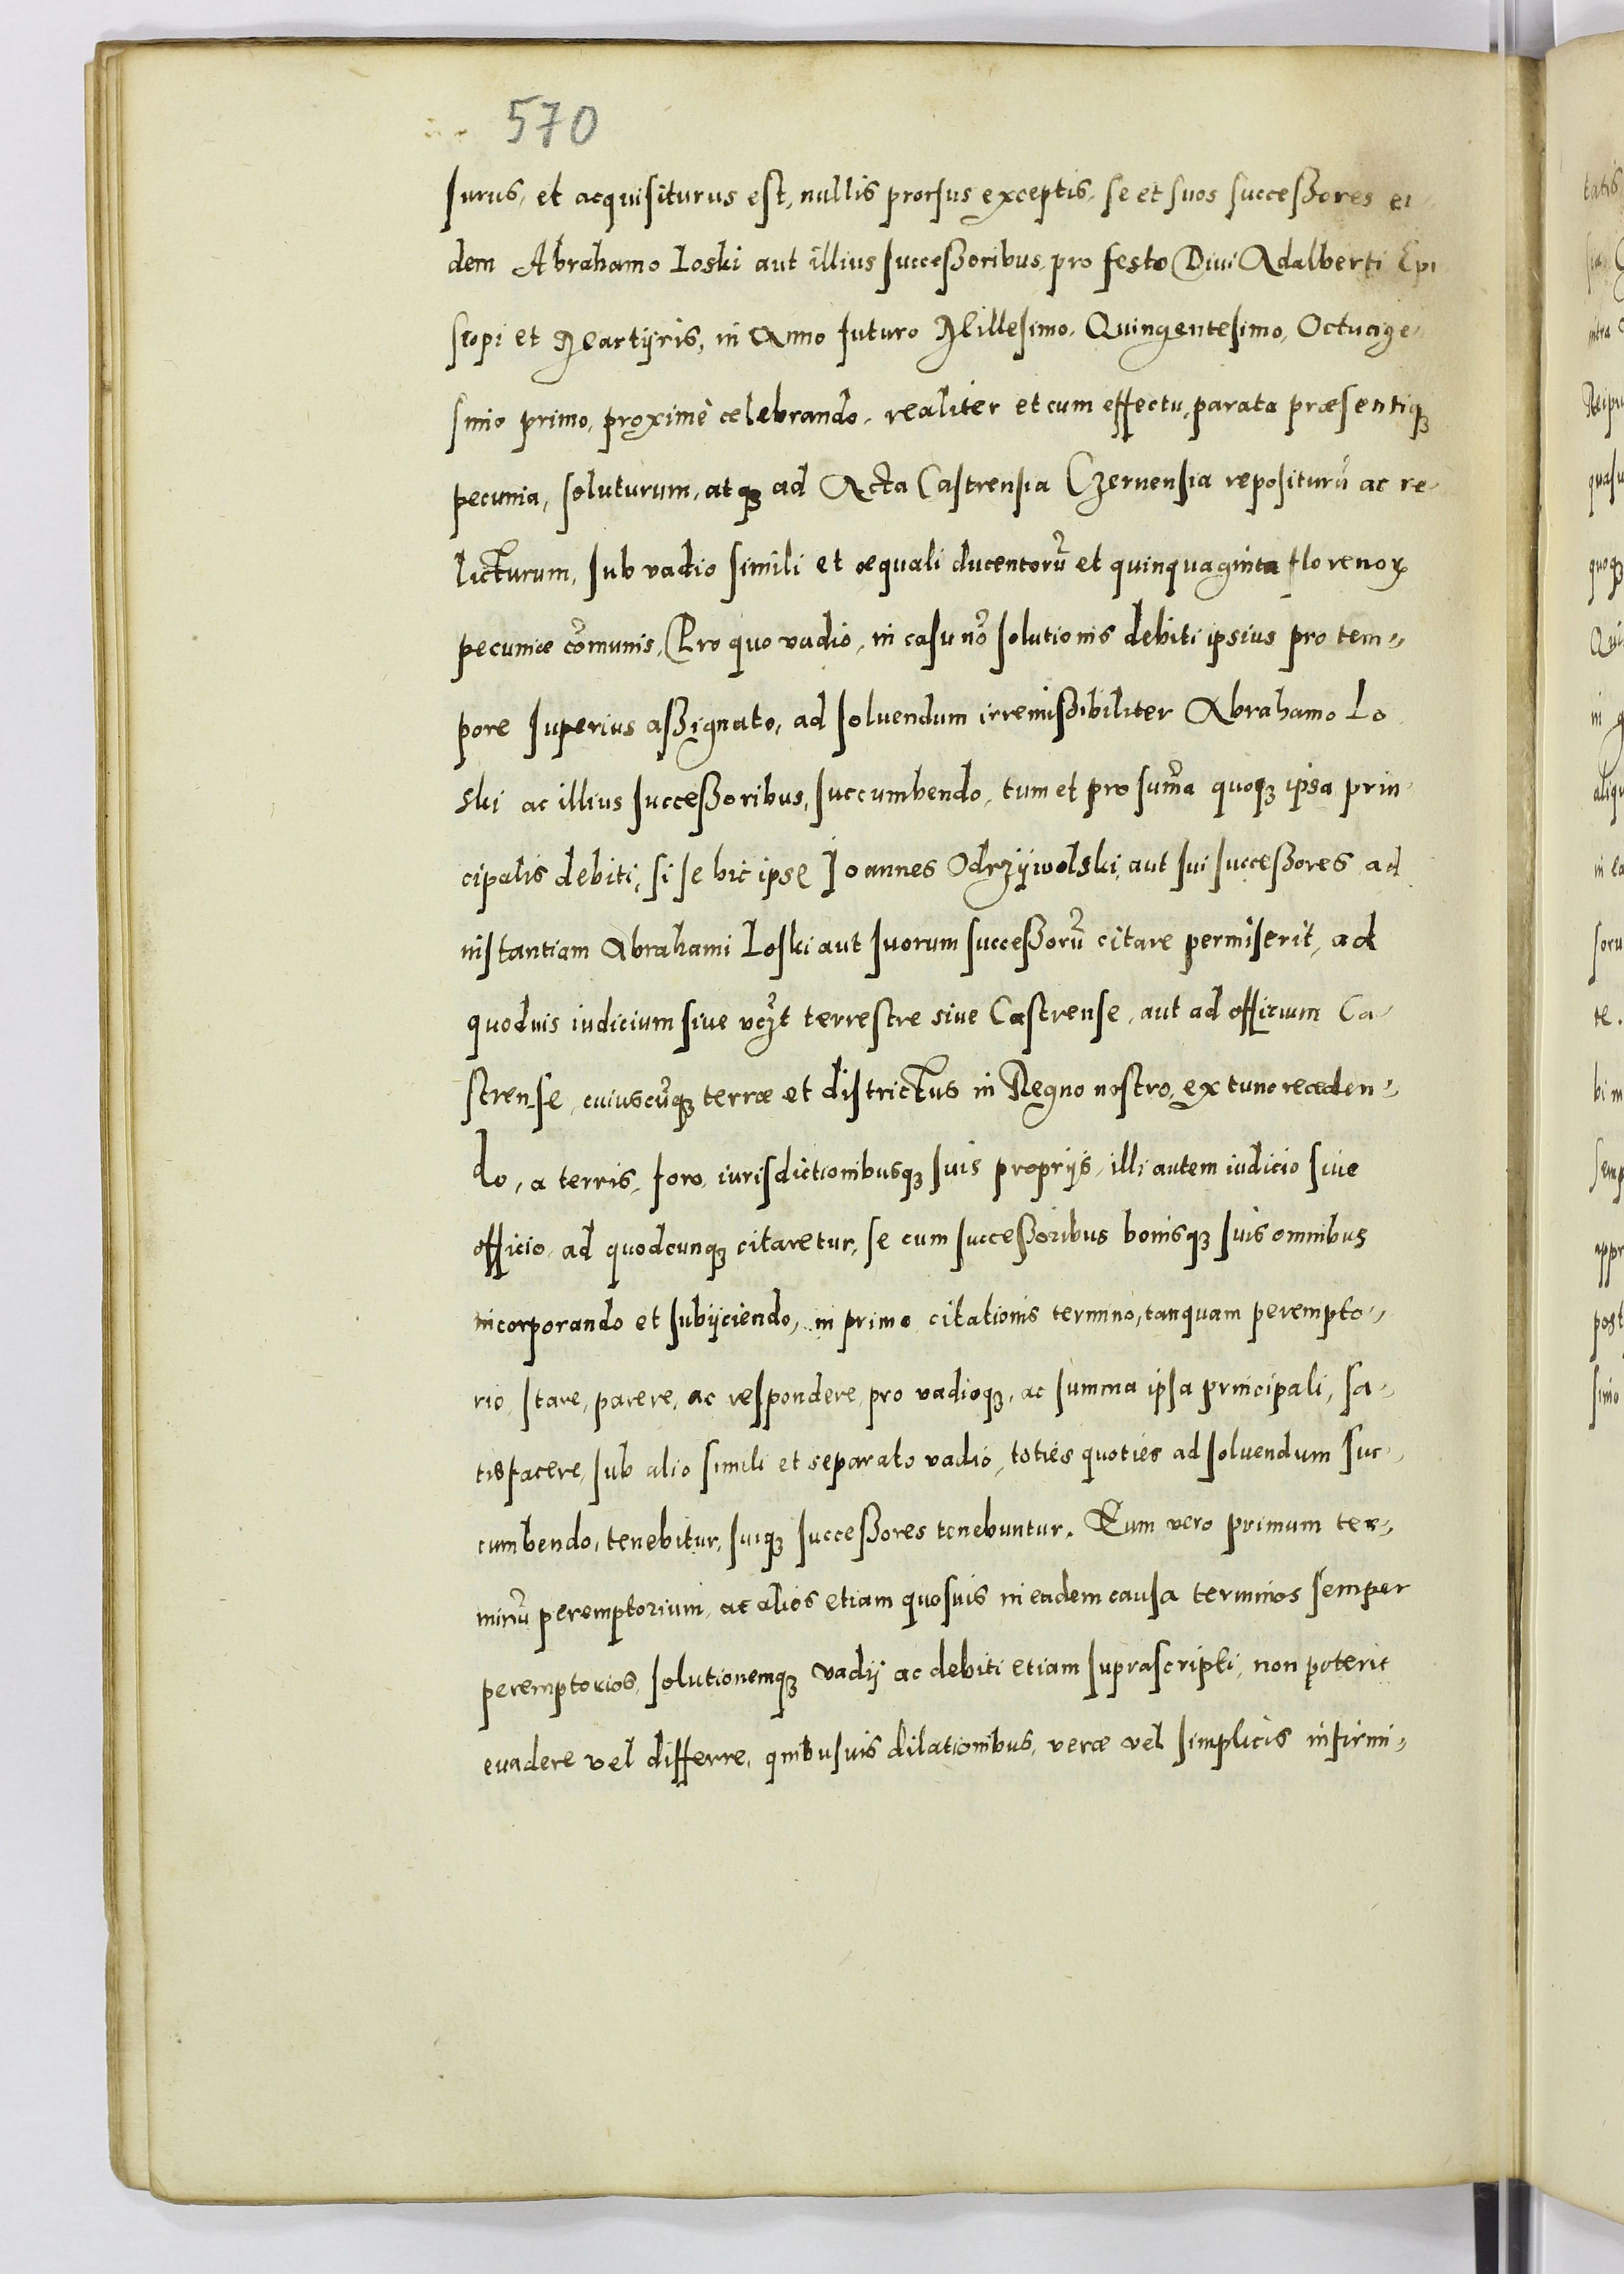 570
surus, et acquisiturus est, nullis prorsus exceptis, se et suos successores ei-
dem Abrahamo Loski aut illius successoribus, pro festo Diui Adalberti Epi
scopi et Martyris, in Anno futuro Millesimo, Quingentesimo, Octuage-
simo primo, proximè celebrando, realiter et cum effectu, parata præsentiqꝫ
pecunia, soluturum, atqꝫ ad Acta Castrensia Czernensia repositurũ ac re-
licturum, sub vadio simili et æquali ducentorũ et quinquaginta florenoꝝ
pecuniæ cõmunis, Pro quo vadio, in casu nõ solutionis debiti ipsius pro tem-
pore superius assignato, ad soluendum irremissibiliter Abrahamo Lo
ski ac illius successoribus, succumbendo, tum et pro sum̃a quoqꝫ ipsa prin
cipalis debiti, si se hic ipse Joannes Odrzÿwolski, aut sui successores ad
instantiam Abrahami Loski aut suorum successorũ citare permiserit, ad
quoduis iudicium siue terrestre siue Castrense, aut ad officium Ca-
strense, cuiuscũqꝫ terræ et districtus in Regno nostro, ex tunc recæden-
do, a terris, foro, iurisdictionibusqꝫ suis proprijs, illi autem iudicio siue
officio, ad quodcunqꝫ citaretur, se cum successoribus bonisqꝫ suis omnibus
incorporando et subijciendo, in primo citationis termino, tanquam perempto-
rio, stare, parere, ac respondere, pro vadioqꝫ, ac summa ipsa principali, sa-
tisfacere, sub alio simili et separato vadio, totiés quotiés ad soluendum suc-
cumbendo, tenebitur, suiqꝫ successores tenebuntur. Eum vero primum ter-
minũ peremptorium, ac alios etiam quosuis in eadem causa terminos semper
peremptorios, solutionemqꝫ vadij ac debiti etiam suprascripti, non poterit
euadere vel differre, quibusuis dilationibus, veræ vel simplicis infirmi-